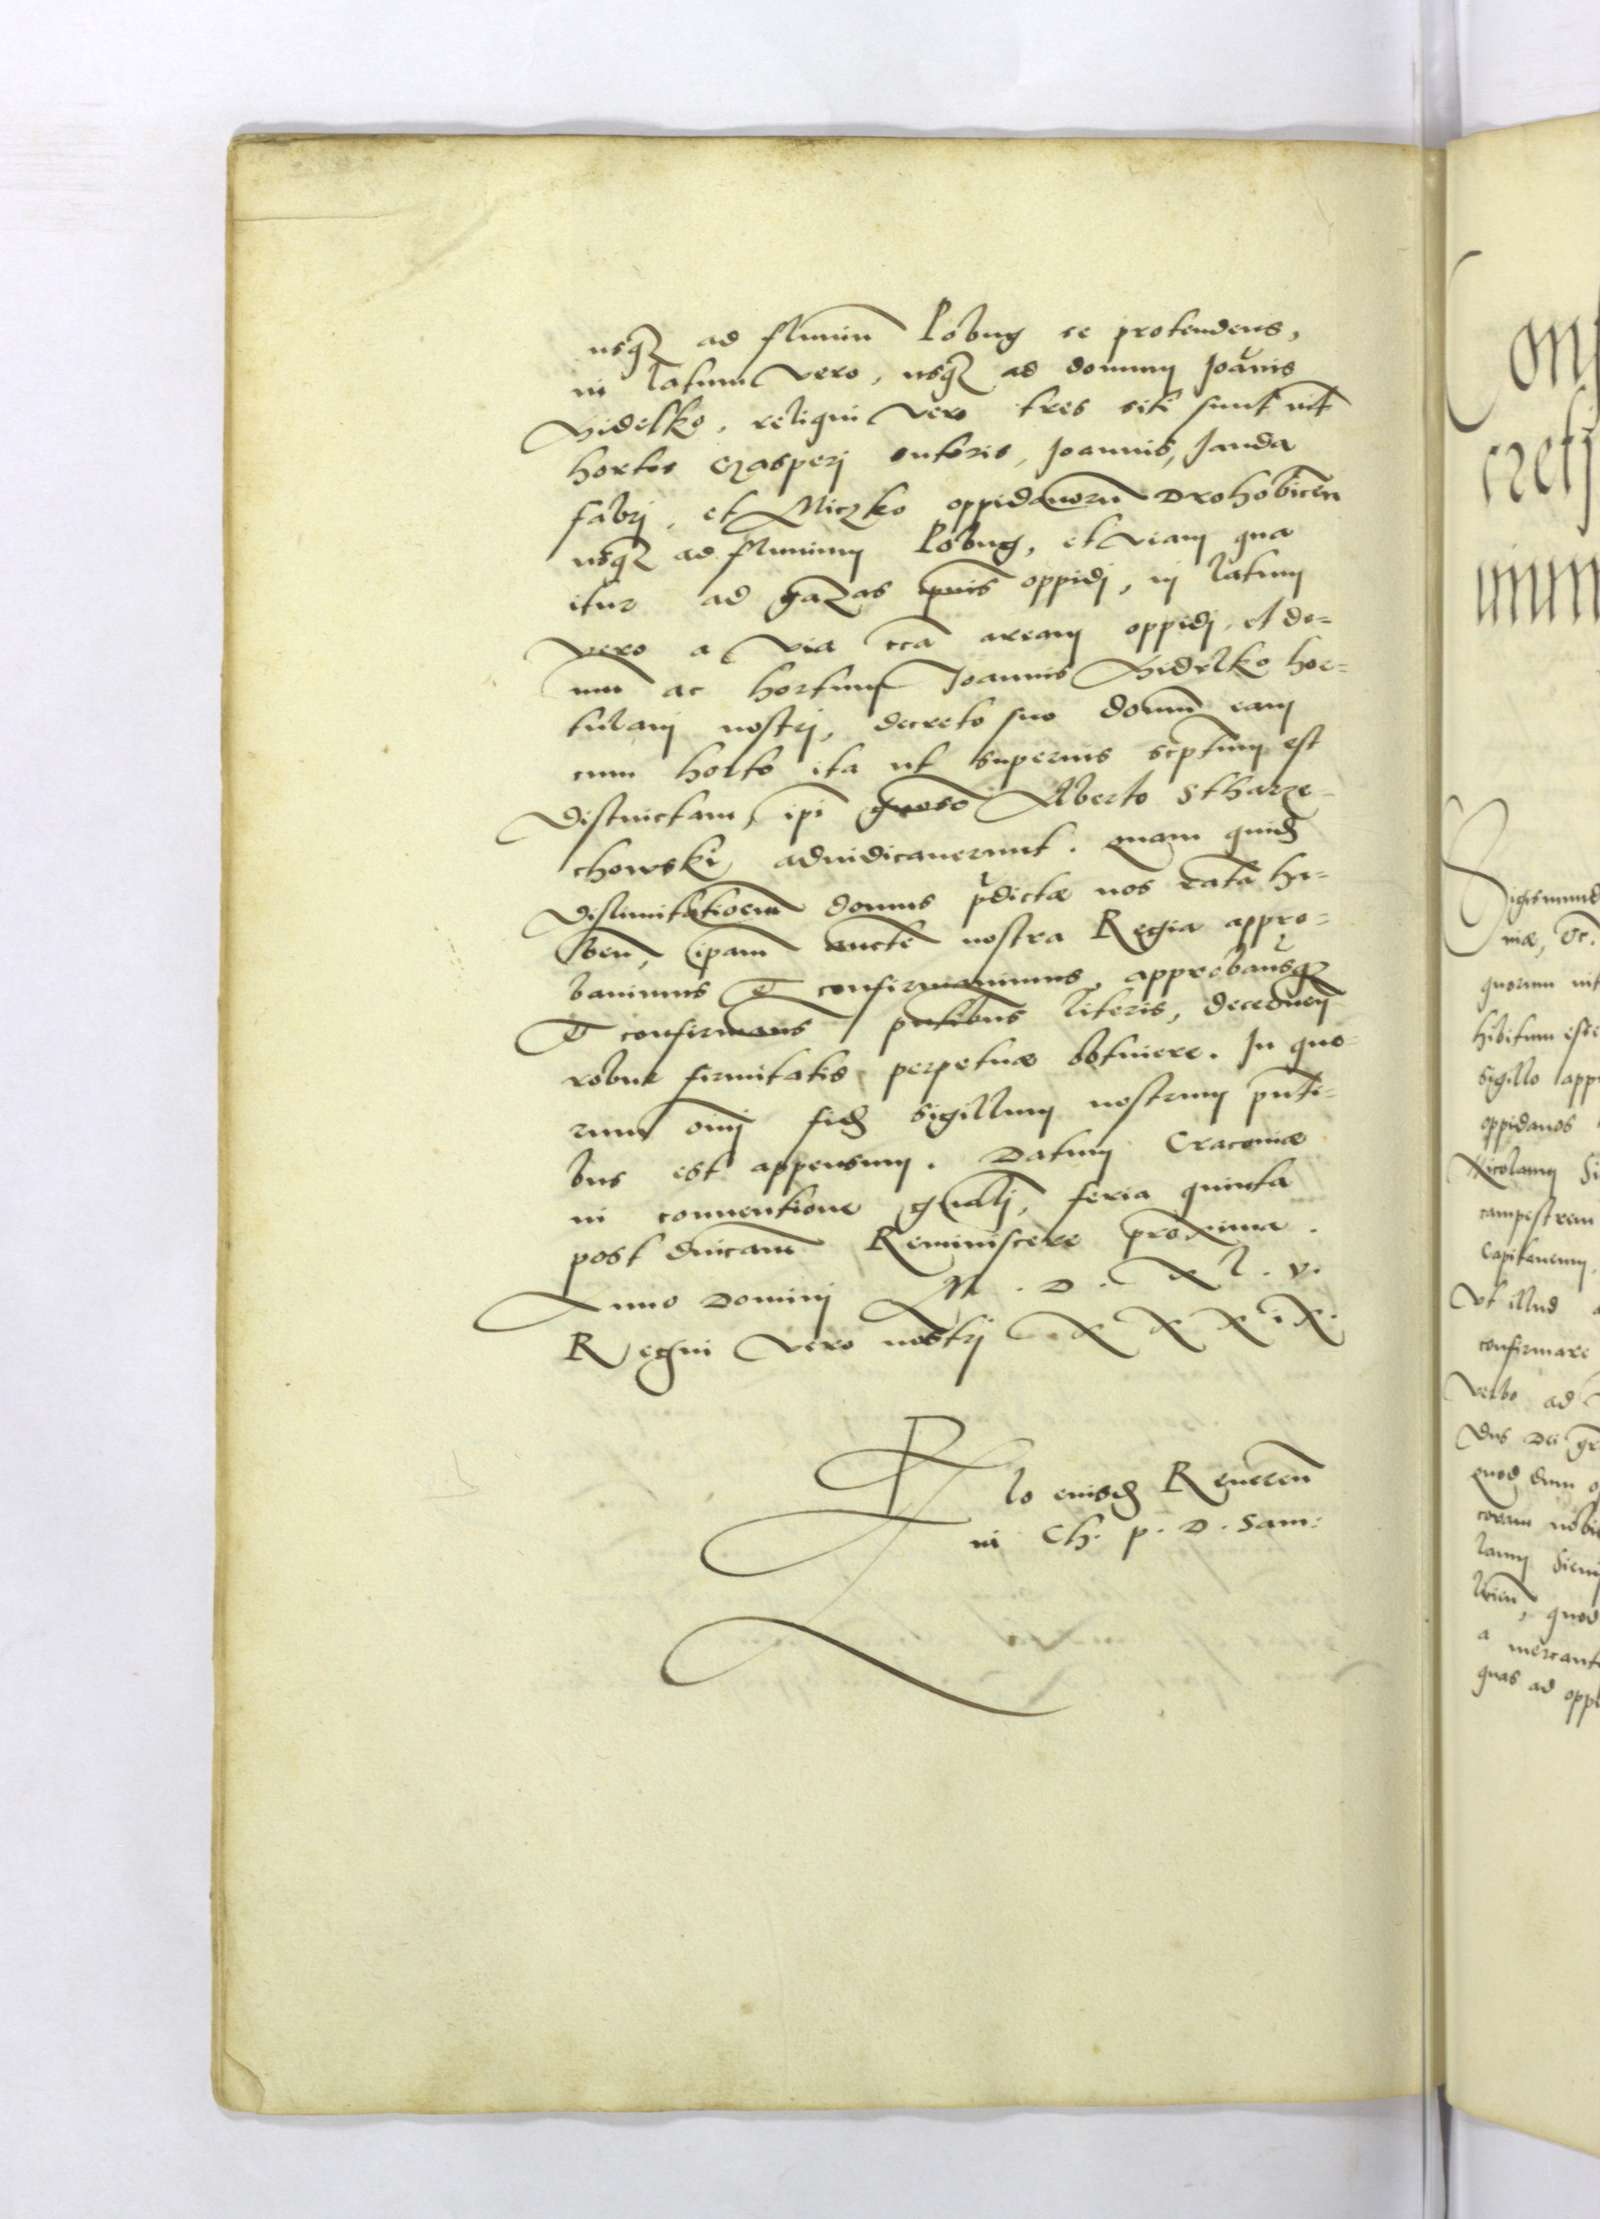 usq3 ad fluuiũ Lobug se protendens,
in latum vero, usq3 ad domum Joãnis
Hidelko, reliqui vero tres siti sunt int
hortos Czasperi sutoris, Joannis, Janda
fabri, et Miczko oppidanorũ Drohobicen̄
usq3 ad fluuium Lobug, et viam qua
itur ad gazas oppidi, in latum
vero a via cca aream oppidi, et do=
mũ ac hortum Joannis Hidelko hor=
tulani nostri, decreto suo domũ eam
cum horto ita ut superius scptum est
distinctam, ipi gnoso Alberto Stharze=
chowski adiudicauerunt. Quam quid
dislimitationem domus p̃dictæ nos ratã ha=
ben̄, ipam aucte nostra Regia appro=
bauimus & confirmauimus, approbausq3
& confirmans pntibus literis, decernen̄
robur firmitatis perpetuæ obtinere. In quo=
rum om̄ fid sigillum nostrum pnti=
bus est appensum. Datum Cracouiæ
in conuentione gnali, feria quinta
post dnicam Reminiscere proxima.
Anno Domini M. D. XL. V.
Regni vero nostri XXXIX.
Rlo eiusd Reueren̄
in Ch. p. D. Sam:
Conf
creti
Sigismund
niæ, &c.
quorum
hibitum esse
sigillo app
oppidanos
Nicolaum Si
campestrem
Capitaneum,
Ut illud a
confirmare
verbo ad
Dns Dei gr
quod cum o
coram nobi
laum Sieni
quod
a mercant
quas ad opp